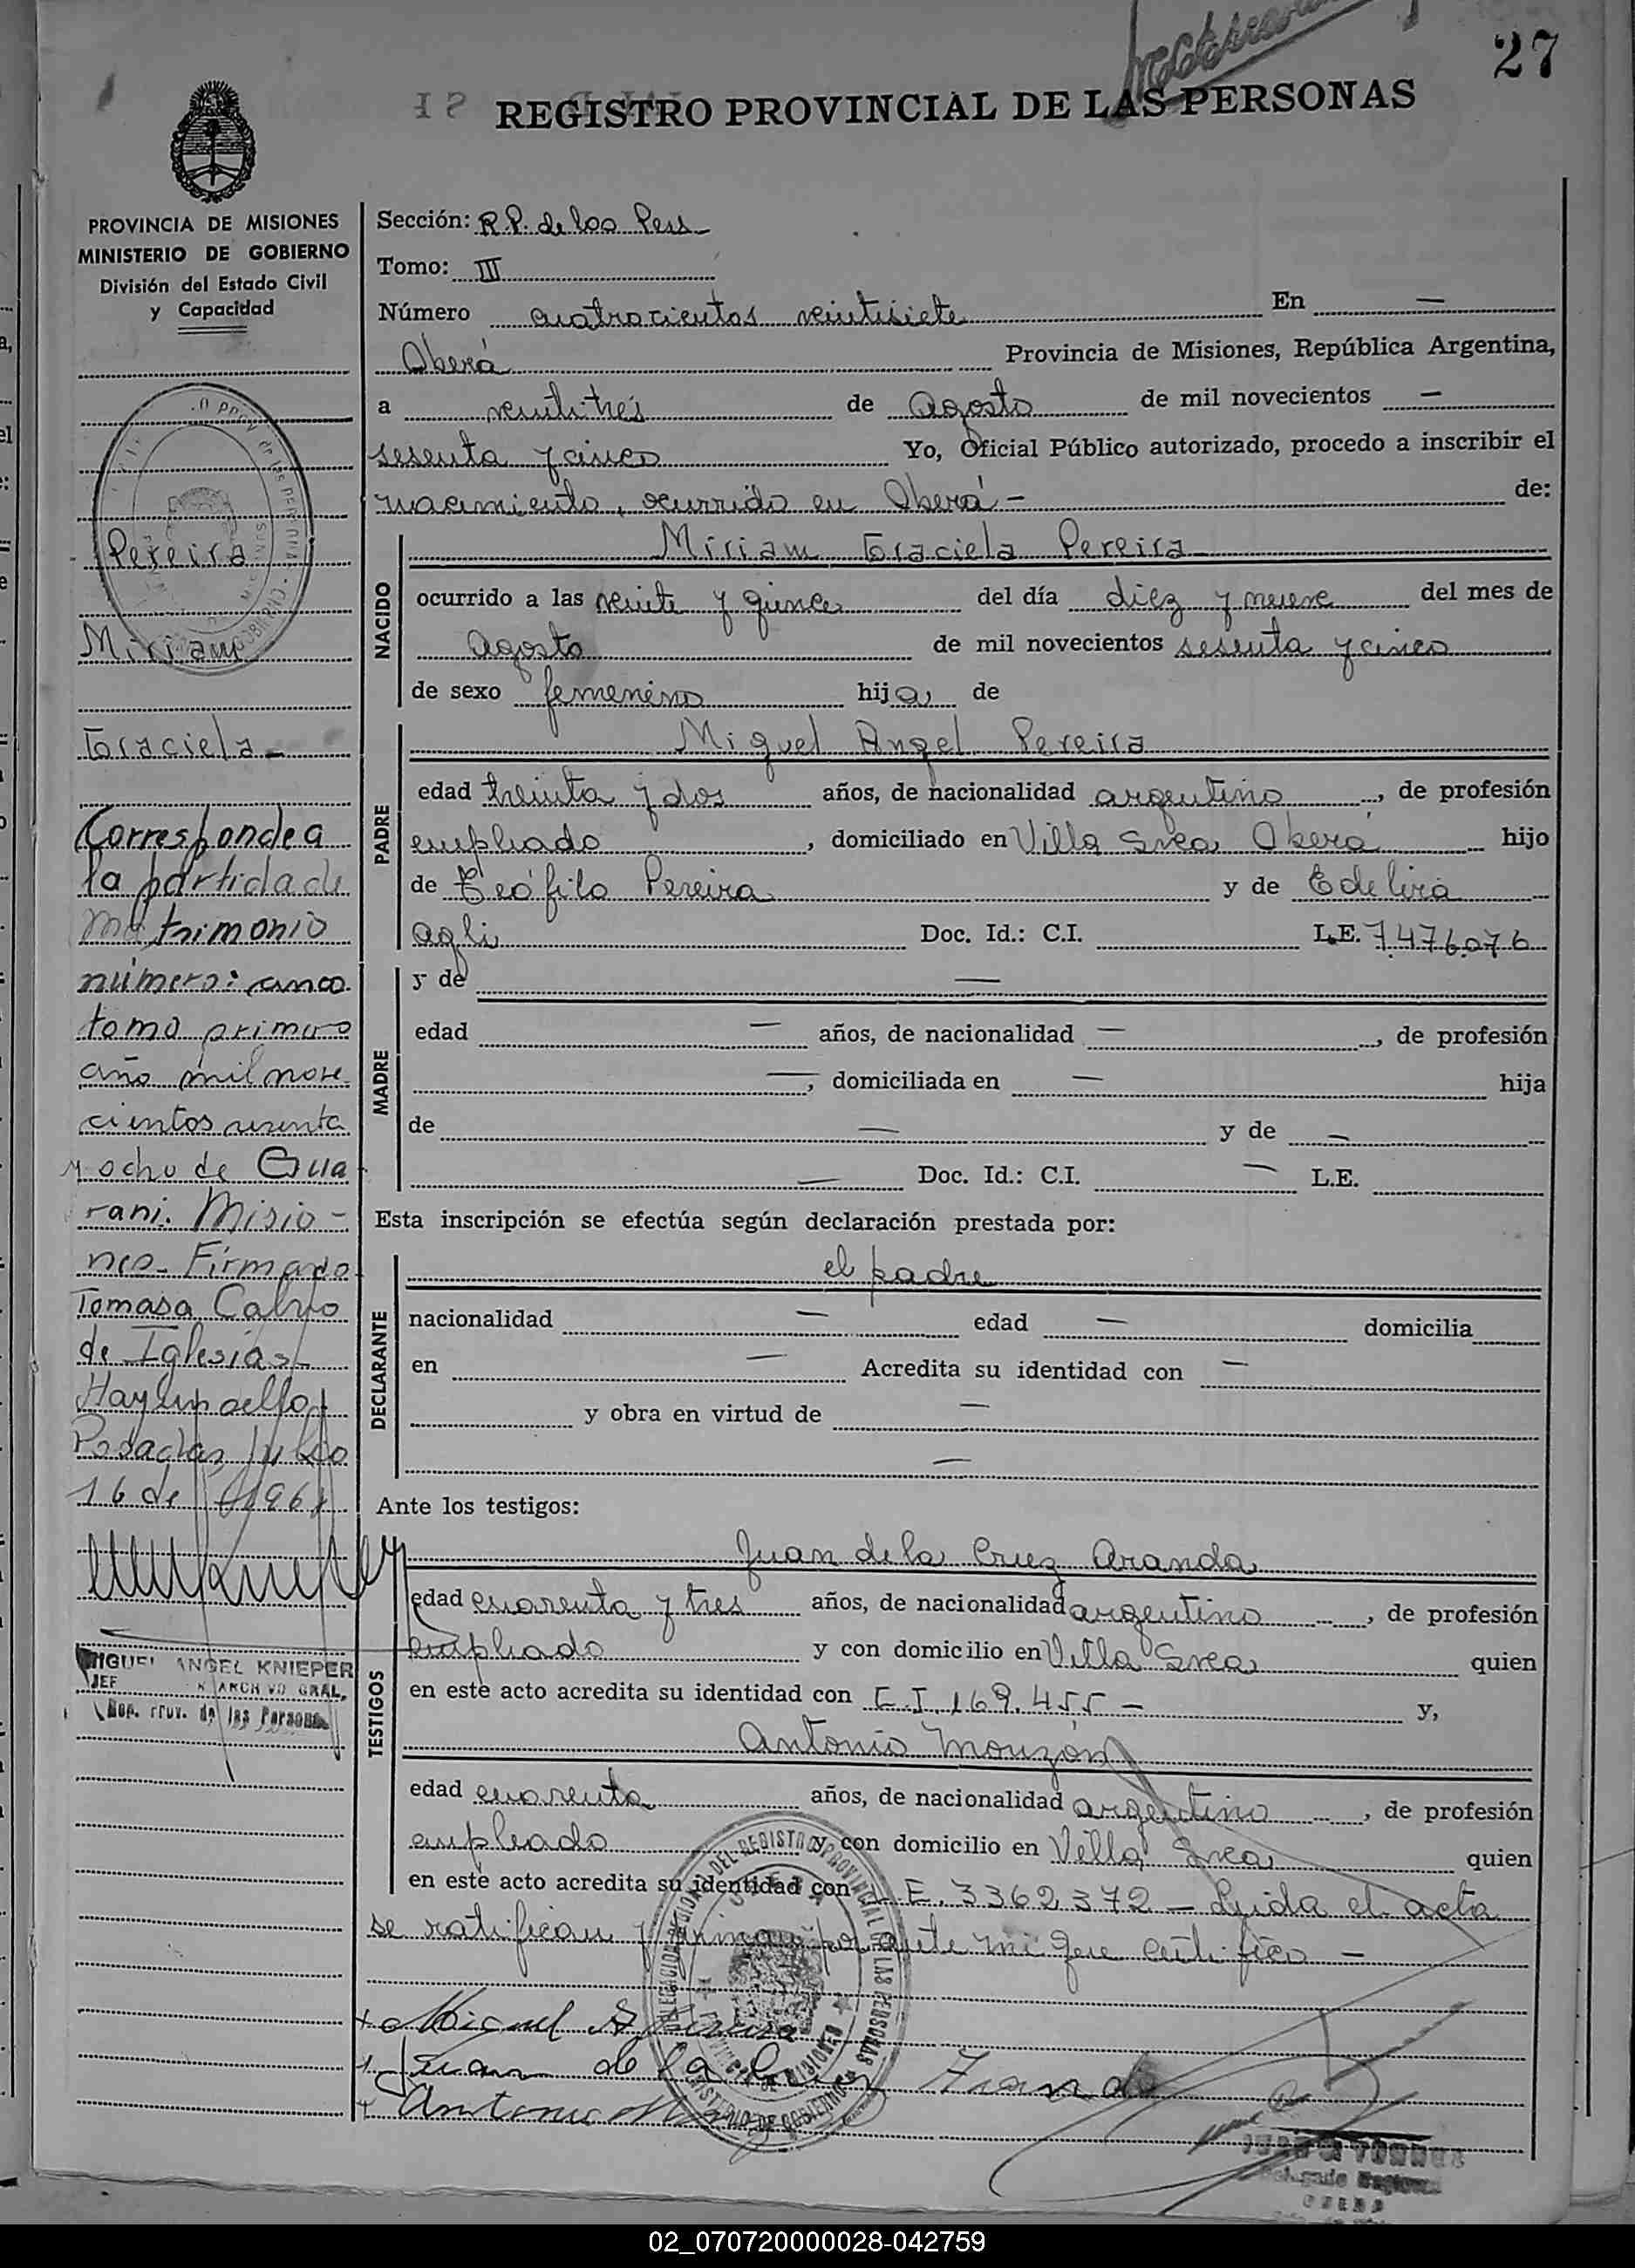 27
REGISTRO PROVINCIAL DE LAS PERSONAS
PROVINCIA DE MISIONES
MINISTERIO DE GOBIERNO
División del Estado Civil
y Capacidad
Pereira
Miriam
Graciela -
Corresponde a
la partida de
matrimonio
número: cinco
tomo primero
año mil nove
cientos sesenta
y ocho de Gua
raní. Misio-
nes. Firmado
Tomasa Calvo
de Iglesias
Hay un sello
Posadas, Julio
16 de 196
MIGUEL ANGEL KNIEPER
JEF ARCHIVO GRAL.
Rep. Prov. de las Personas
Sección: R.P. de las Pers -
Tomo: III
Número cuatrocientos veintisiete En —
Oberá Provincia de Misiones, República Argentina,
a veintitrés de Agosto de mil novecientos —
sesenta y cinco Yo, Oficial Público autorizado, procedo a inscribir el
nacimiento, ocurrido en Oberá - de:
NACIDO
Miriam Graciela Pereira
ocurrido a las veinte y quince del día diez y nueve del mes de
Agosto de mil novecientos sesenta y cinco
de sexo femenino hija de
PADRE
Miguel Angel Pereira
edad treinta y dos años, de nacionalidad argentino, de profesión
empleado, domiciliado en Villa Svea Oberá hijo
de Teófilo Pereira y de Edelira
Agli Doc. Id.: C.I. L.E. 7.476.076
MADRE
y de —
edad — años, de nacionalidad —, de profesión
—, domiciliada en — hija
de — y de —
— Doc. Id.: C.I. — L.E.
Esta inscripción se efectúa según declaración prestada por:
DECLARANTE
el padre
nacionalidad — edad — domicilia
en — Acredita su identidad con —
y obra en virtud de —
—
Ante los testigos:
TESTIGOS
Juan de la Cruz Aranda
edad cuarenta y tres años, de nacionalidad argentino, de profesión
empleado y con domicilio en Villa Svea quien
en este acto acredita su identidad con C.I. 169.455 - y,
Antonio Monzón
edad cuarenta años, de nacionalidad argentino, de profesión
empleado y con domicilio en Villa Svea quien
en este acto acredita su identidad con L.E. 3362372 - Leída el acta
se ratifican y firman por ante mi que certifico -
Miguel A Pereira
Juan de la Cruz Aranda
Antonio
JUAN TORRES
Delegado Regional
OBERA
02_070720000028-042759